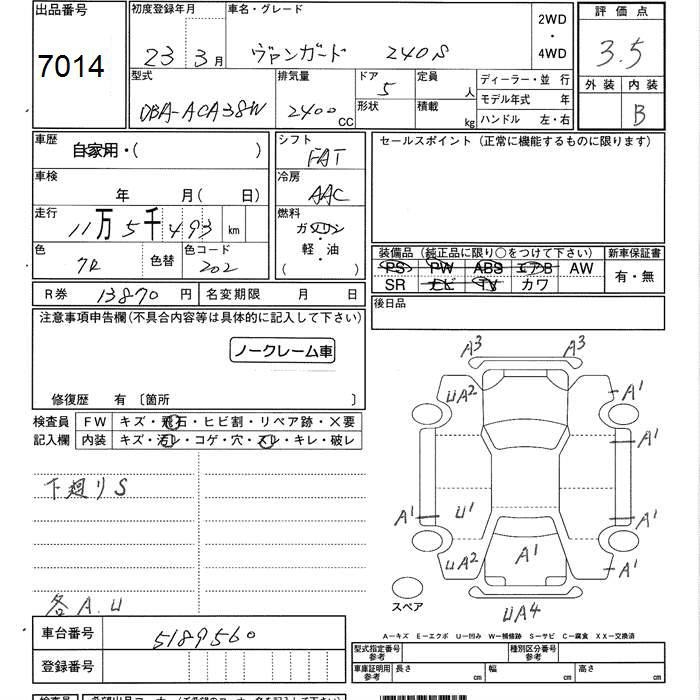 出品番号
7014
初度登録年月
23 3月
車名・グレード
ヴァンガード 240S
2WD
・
4WD
評価点
3.5
外装 内装
B
型式
DBA-ACA38W
排気量
2400 CC
ドア
5
形状
定員
人
積載
kg
ディーラー・並行
モデル年式 年
ハンドル 左・右
車歴
自家用・( )
車検
年 月(日)
走行
11万5千493 km
色
色替
色コード
202
シフト
FAT
冷房
AAC
燃料
ガソリン
・
軽・油
( )
セールスポイント (正常に機能するものに限ります)
装備品 (純正品に限り○をつけて下さい)
PS PW ABS エアB AW
SR ナビ TV カワ
新車保証書
有・無
後日品
R券 13870 円
名変期限 月 日
注意事項申告欄(不具合内容等は具体的に記入して下さい)
ノークレーム車
修復歴 有 〔箇所 〕
検査員
記入欄
FW キズ・飛石・ヒビ割・リペア跡・×要
内装 キズ・汚レ・コゲ・穴・スレ・キレ・破レ
下廻りS
各A.U
A3 A3
UA2 A1
A1
A1 U1 A1
UA2 A1 A1
UA4
スペア
A－キズ E－エクボ U－凹み W－補修跡 S－サビ C－腐食 XX－交換済
車台番号
5189560
登録番号
型式指定番号
参考
種別区分番号
参考
車庫証明用
参考
長さ cm
幅 cm
高さ cm